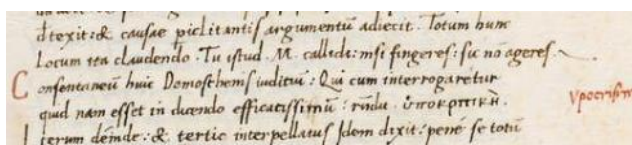 dtexit: & causae piclitantis argumentū adiecit. Totum hunc
Locum ita claudendo. Tu istud .M. callidi: nisi fingeres: sic nō ageres.
Consentaneū huic Demosthenis iuditiū: Qui cum interrogaretur
quid nam esset in dicendo efficatissimū: rñdit. ὑποκριτικὴ.
ypocrisim
Iterum deinde: & tertio interpellatus Idem dixit: penè se totū